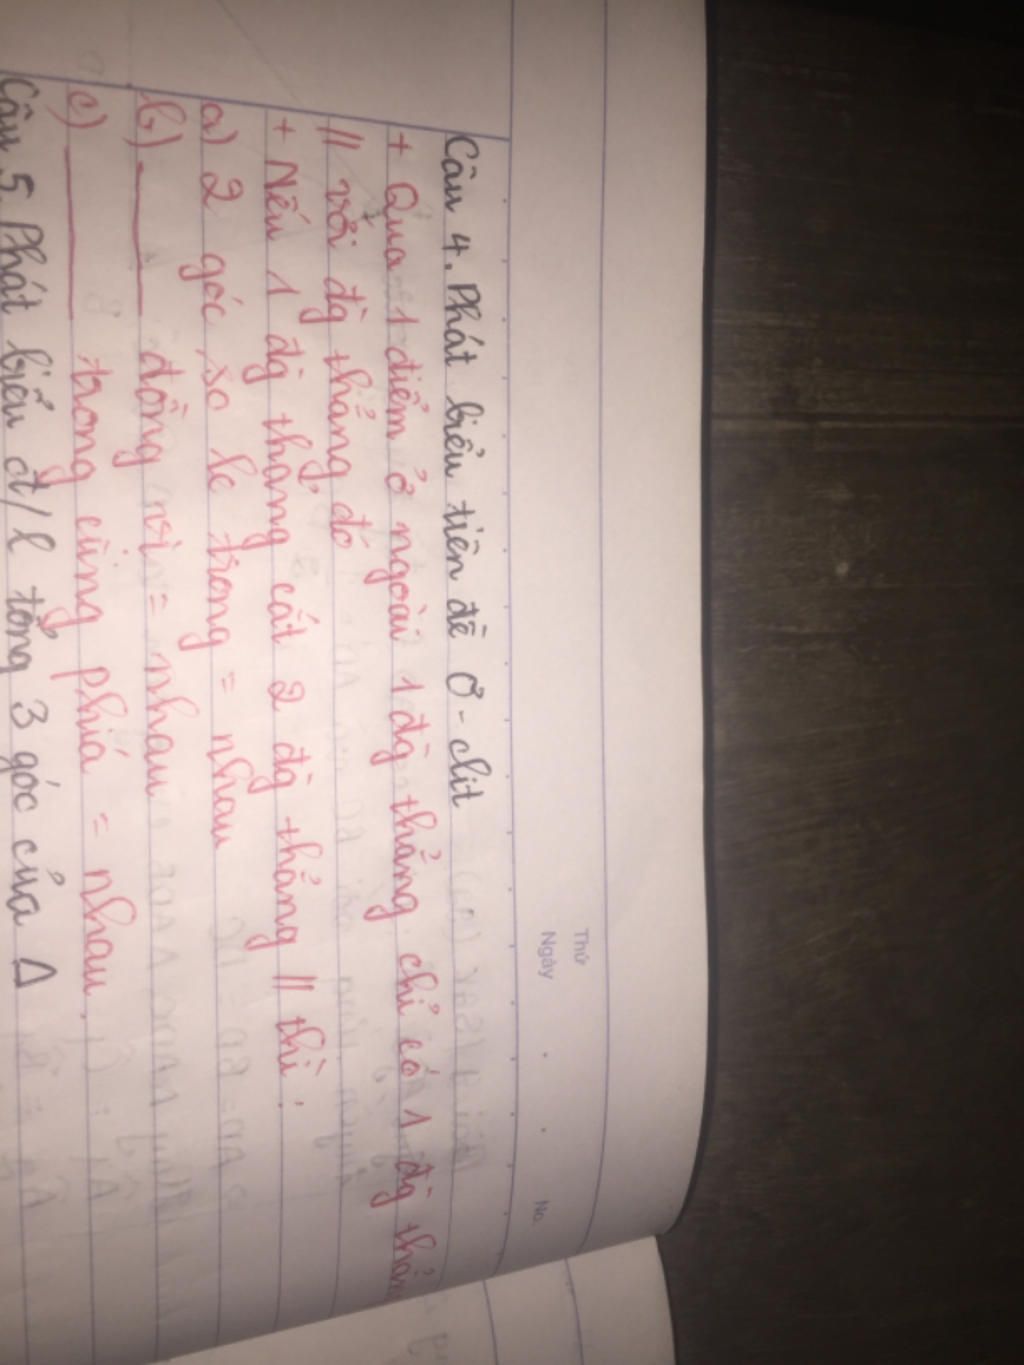 Thứ
Ngày
No.
Câu 4. Phát biểu tiên đề Ơ-clit
+ Qua 1 điểm ở ngoài 1 đg thẳng chỉ có 1 đg thẳng
// với đg thẳng đó
+ Nếu 1 đg thẳng cắt 2 đg thẳng // thì:
a) 2 góc so le trong = nhau
b) ____ đồng vị = nhau
c) ____ trong cùng phía = nhau.
Câu 5. Phát biểu đ/l tổng 3 góc của Δ